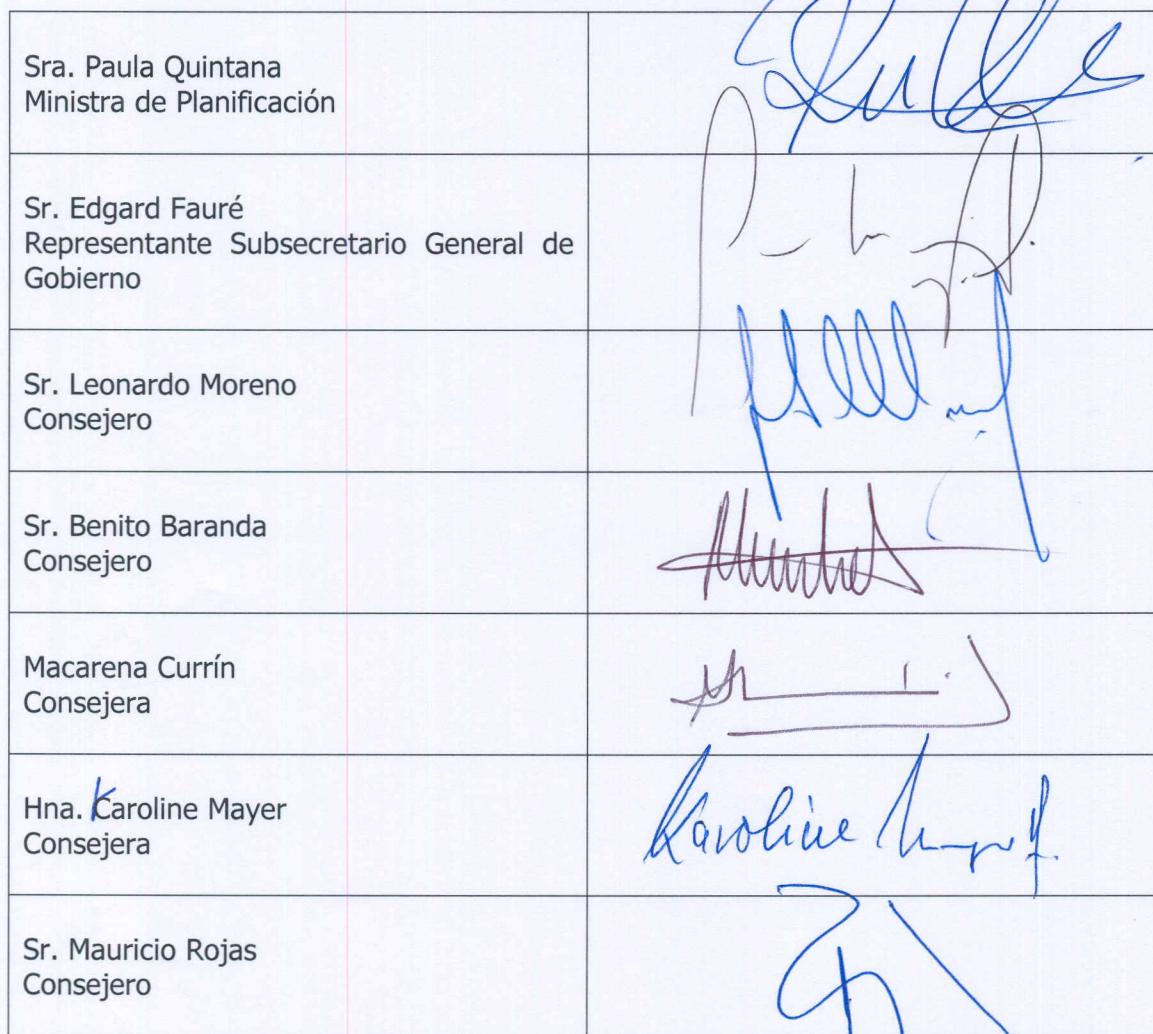 Sra. Paula Quintana
Ministra de Planificación
Sr. Edgard Fauré
Representante Subsecretario General de
Gobierno
Sr. Leonardo Moreno
Consejero
Sr. Benito Baranda
Consejero
Macarena Currín
Consejera
Hna. Karoline Mayer
Consejera
Karoline
Sr. Mauricio Rojas
Consejero